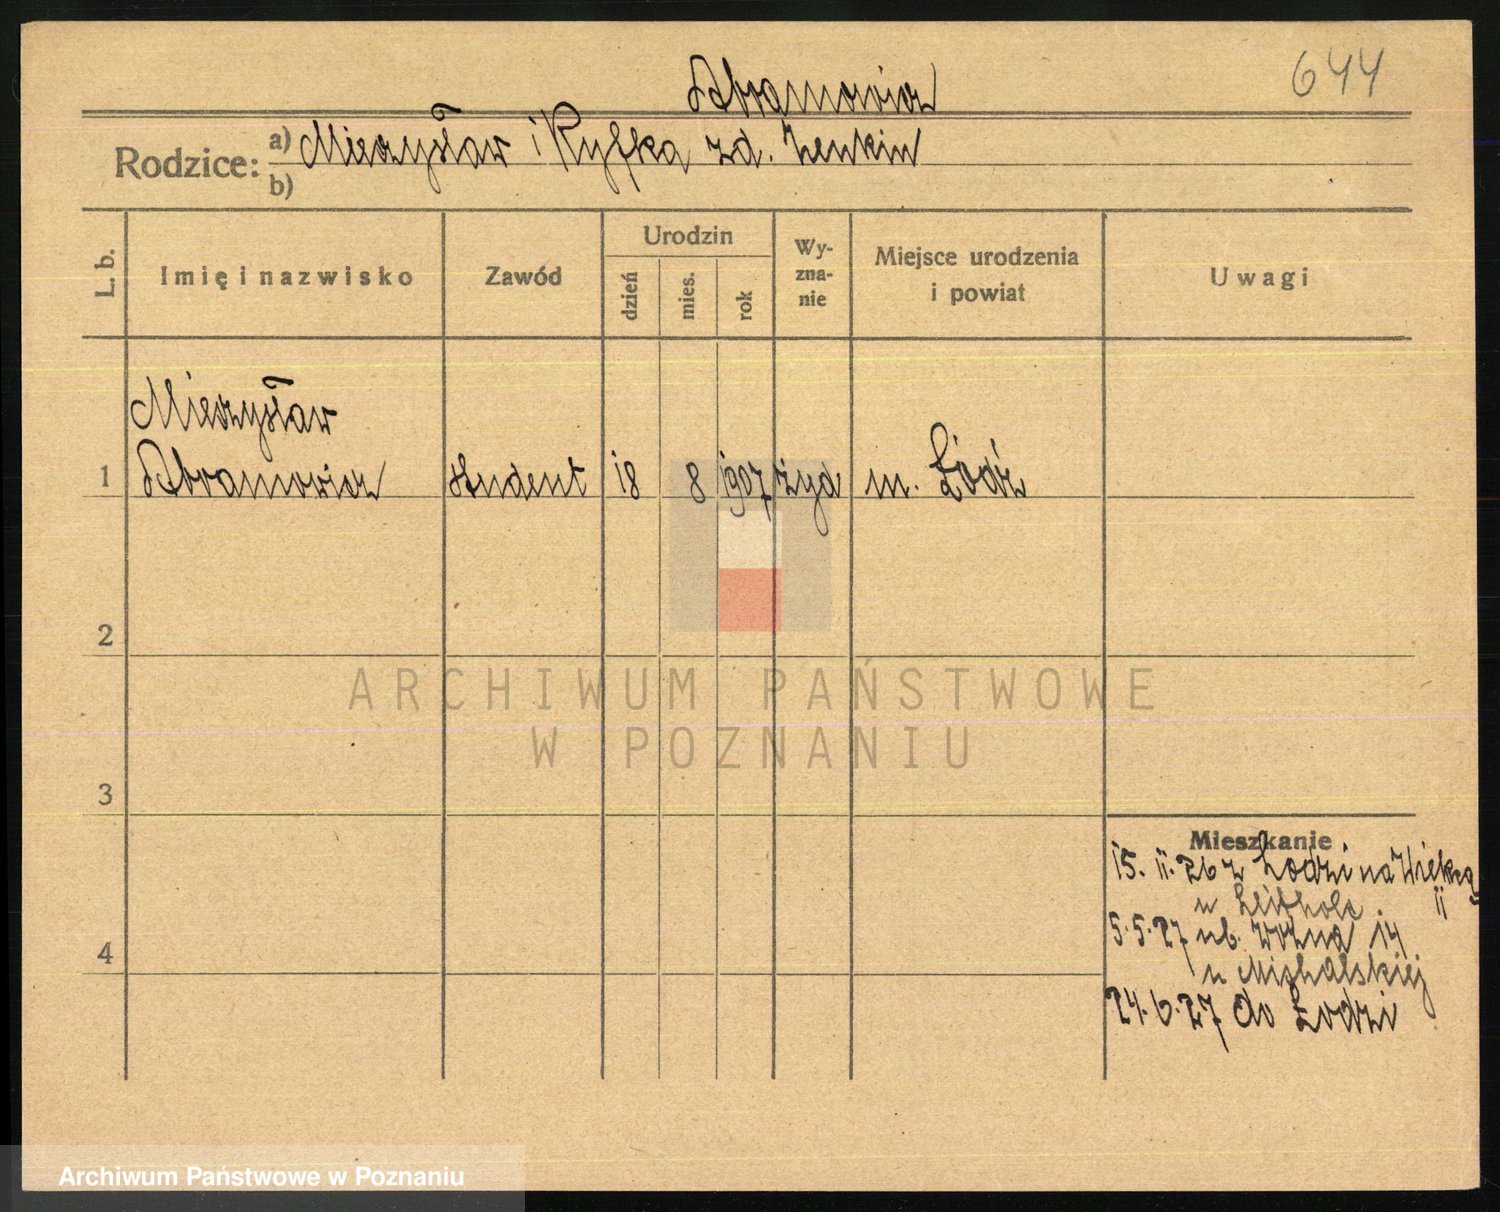 644
Abramowicz
Rodzice: a) Mieczysław i Ryfka zd. Zenkin
b)
L. b. Imię i nazwisko Zawód Urodzin dzień mies. rok Wy-zna-nie Miejsce urodzenia i powiat Uwagi
Mieczysław
1 Abramowicz student 18 8 1907 żyd m. Łódź
2
ARCHIWUM PAŃSTWOWE
W POZNANIU
3
Mieszkanie
15. 11. 26 z Łodzi na Wielką
u 11
4
5.5.27 ub. Woźna 14
u Michalskiej
24.6.27 do Łodzi
Archiwum Państwowe w Poznaniu